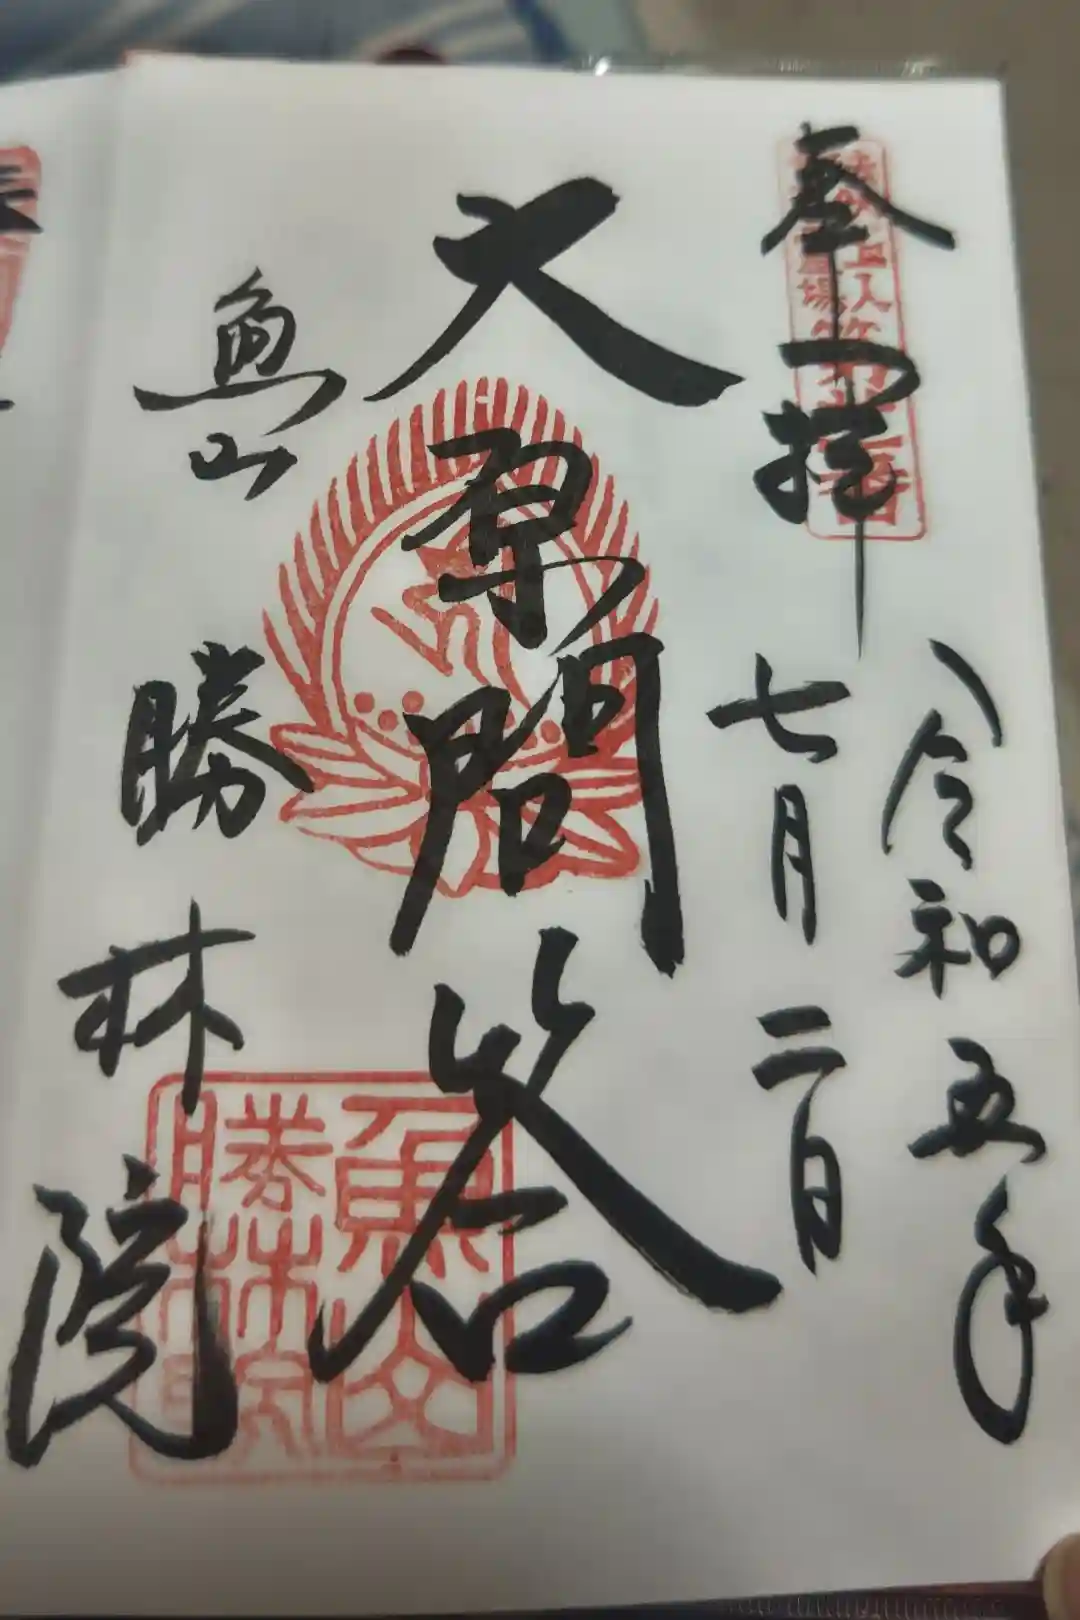 奉拝
令和五年
七月二日
大原問答
魚山
勝林院
魚山
勝林院